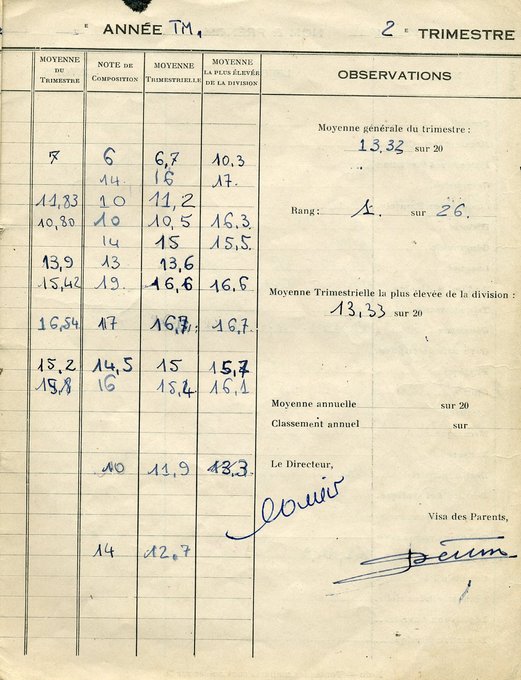 e ANNÉE TM, 2 e TRIMESTRE
MOYENNE DU TRIMESTRE
NOTE DE COMPOSITION
MOYENNE TRIMESTRIELLE
MOYENNE LA PLUS ÉLEVÉE DE LA DIVISION
OBSERVATIONS
Moyenne générale du trimestre :
13,33 sur 20
7 6 6,7 10,3
14 16 17.
11,83 10 11,2
Rang : 1. sur 26.
10,80 10 10,5 16,3
14 15 15,5
13,9 13 13,6
15,42 19 16,6 16,6
Moyenne Trimestrielle la plus élevée de la division :
13,33 sur 20
16,54 17 16,7 16,7
15,2 14,5 15 15,7
16 16,1
Moyenne annuelle sur 20
Classement annuel sur
Le Directeur,
10 11,9 13,3
Visa des Parents,
14 12,7